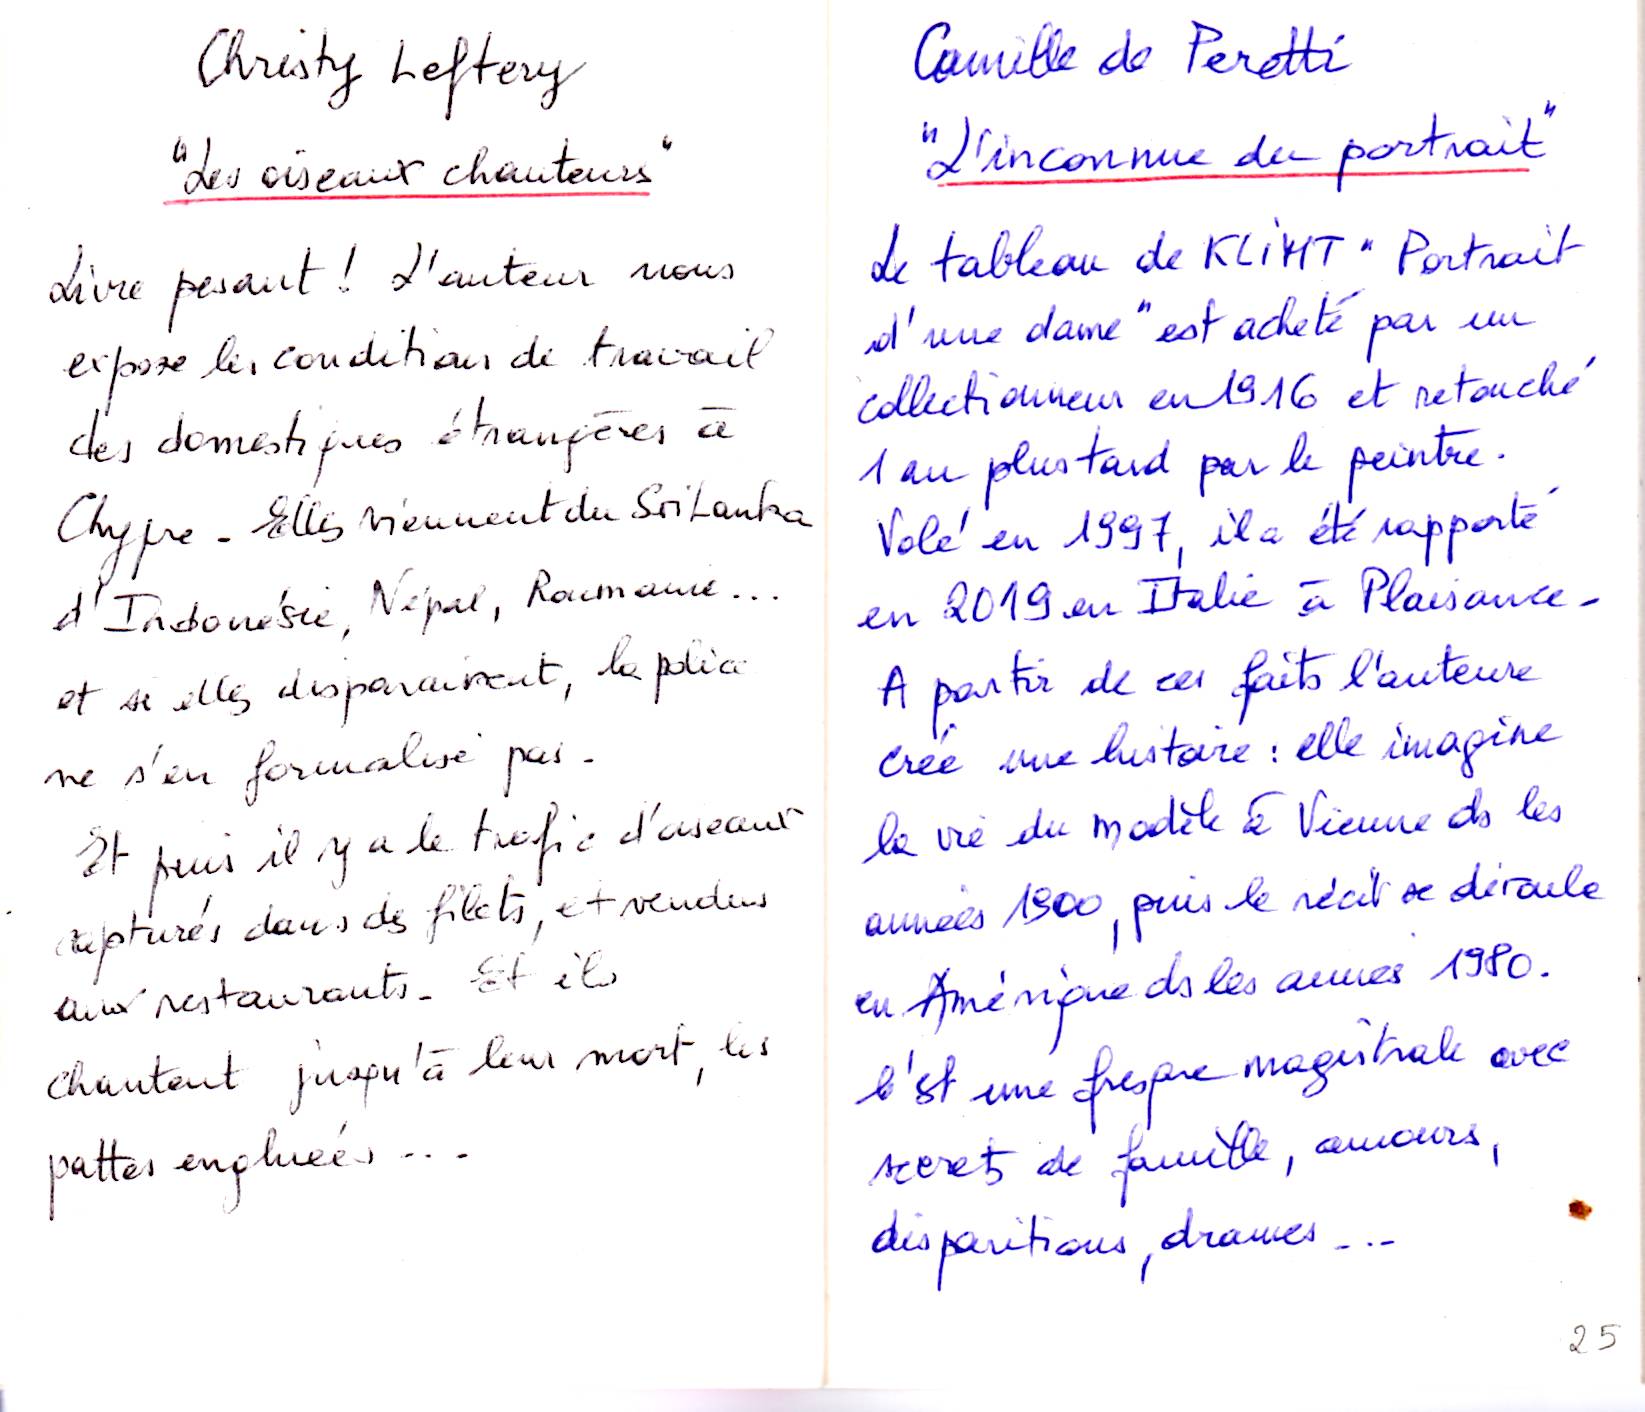 Christy Leftery
"Les oiseaux chanteurs"
Livre pesant ! L'auteur nous
expose les conditions de travail
des domestiques étrangères à
Chypre - Elles viennent du Sri Lanka
d'Indonésie, Népal, Roumanie...
et si elles disparaissent, la police
ne s'en formalise pas -
Et puis il y a le trafic d'oiseaux
capturés dans des filets, et vendus
aux restaurants - Et ils
chantent jusqu'à leur mort, les
pattes engluées ...
Camille de Peretti
"L'inconnue du portrait"
Le tableau de KLIMT "Portrait
d'une dame" est acheté par un
collectionneur en 1916 et retouché
1 an plus tard par le peintre.
Volé en 1997, il a été rapporté
en 2019 en Italie à Plaisance -
A partir de ces faits l'auteure
créé une histoire : elle imagine
la vie du modèle à Vienne ds les
années 1900, puis le récit se déroule
en Amérique ds les années 1980.
C'est une fresque magistrale avec
secrets de famille, amours,
disparitions, drames ...
25